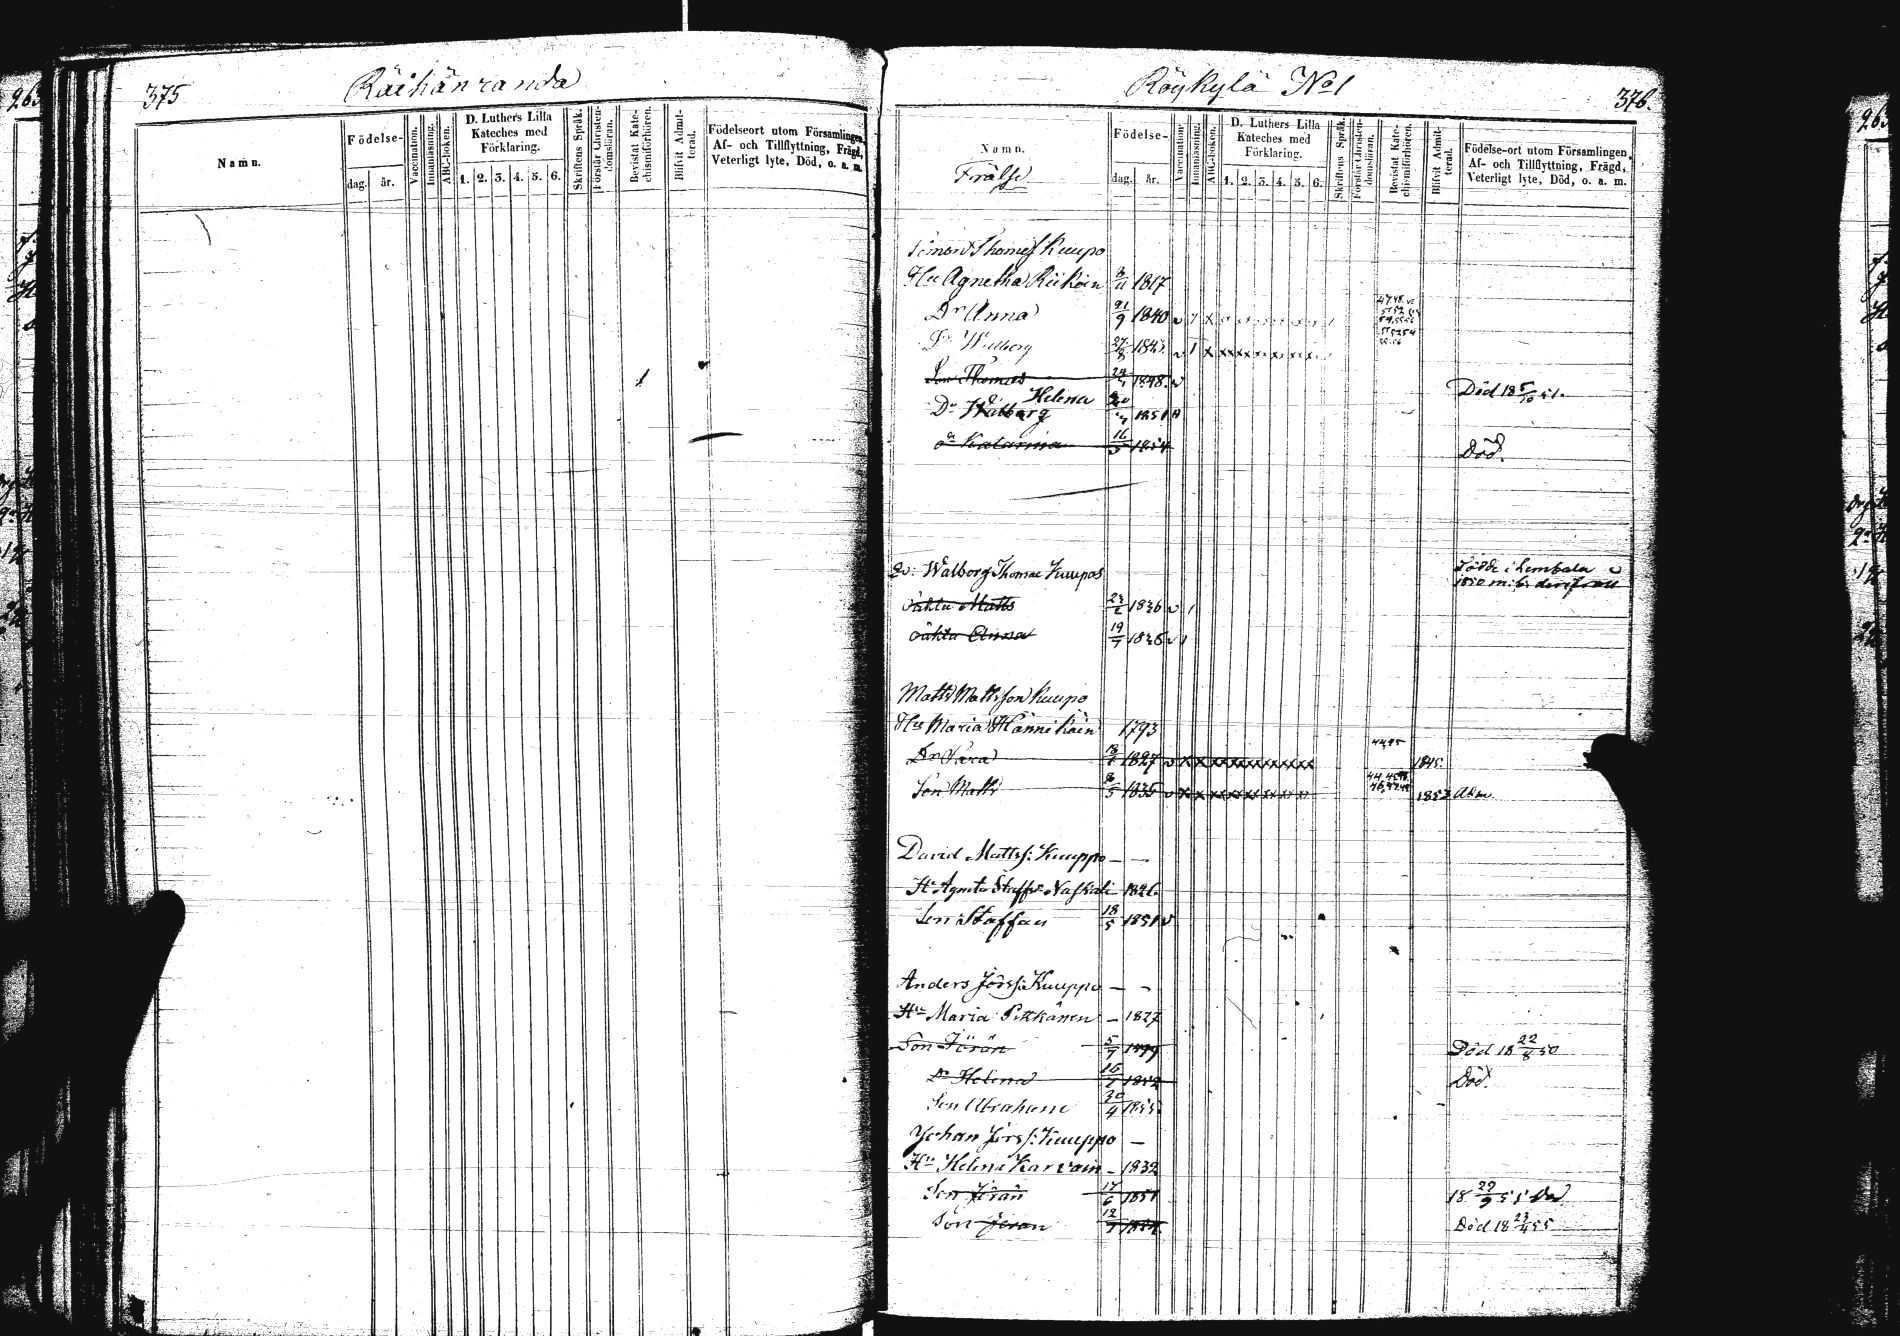 375
Räihänranda
Namn.
Födelse-
dag.
år.
Vaccination.
Innanläsning.
ABC-boken.
D. Luthers Lilla
Kateches med
Förklaring.
1. 2. 3. 4. 5. 6.
Skriftens Språk.
Förstår Christen-
domsläran.
Bevistat Kate-
chismiförhören.
Blifvit Admit-
terad.
Födelseort utom Församlingen,
Af- och Tillflyttning, Frägd,
Veterligt lyte, Död, o. a. m.
Röykylä No 1
376.
Namn.
Frälse
Födelse-
dag.
år.
Vaccination.
Innanläsning.
ABC-boken.
D. Luthers Lilla
Kateches med
Förklaring.
1. 2. 3. 4. 5. 6.
Skriftens Språk.
Förstår Christen-
domsläran.
Bevistat Kate-
chismiförhören.
Blifvit Admit-
terad.
Födelse-ort utom Församlingen,
Af- och Tillflyttning, Frägd,
Veterligt lyte, Död, o. a. m.
Simon Thomess Kuupo
Hu Agnetha Riikoin 1817
Dr Anna 21/9 1840
Dr Walborg 27/8 1843
Son Thomas 1848 Död 18 5/10 51.
Helena
Dr Walborg 1851
Dr Katarina 16/5 1854 Död.
Walborg Thomae Kuupos Född i Lembala
oäkta Matts 1836
oäkta Anna 19/7 1836
Matts Mattsson Kuupo
Hu Maria Hännikäin 1793
Dr Sara 1827 1845
Son Matts 1835 1853
David Mattss: Kuuppo — —
Hu Agneta Staffsdr Naskali 1826
Son Staffan 18/5 1851
Anders Jörss: Kuuppo — -
Hu Maria Pitkänen — 1827
Son Jöran 5/7 1849 Död 18 22/8 50
Dr Helena 1852 Död.
Son Abraham 30/4 1855
Johan Jörss: Kuuppo —
Hu Helena Karvain - 1832
Son Jöran 17/6 1851 18 29/9 51 Död
Son Jöran 12/7 1854 Död 18 23/4 55